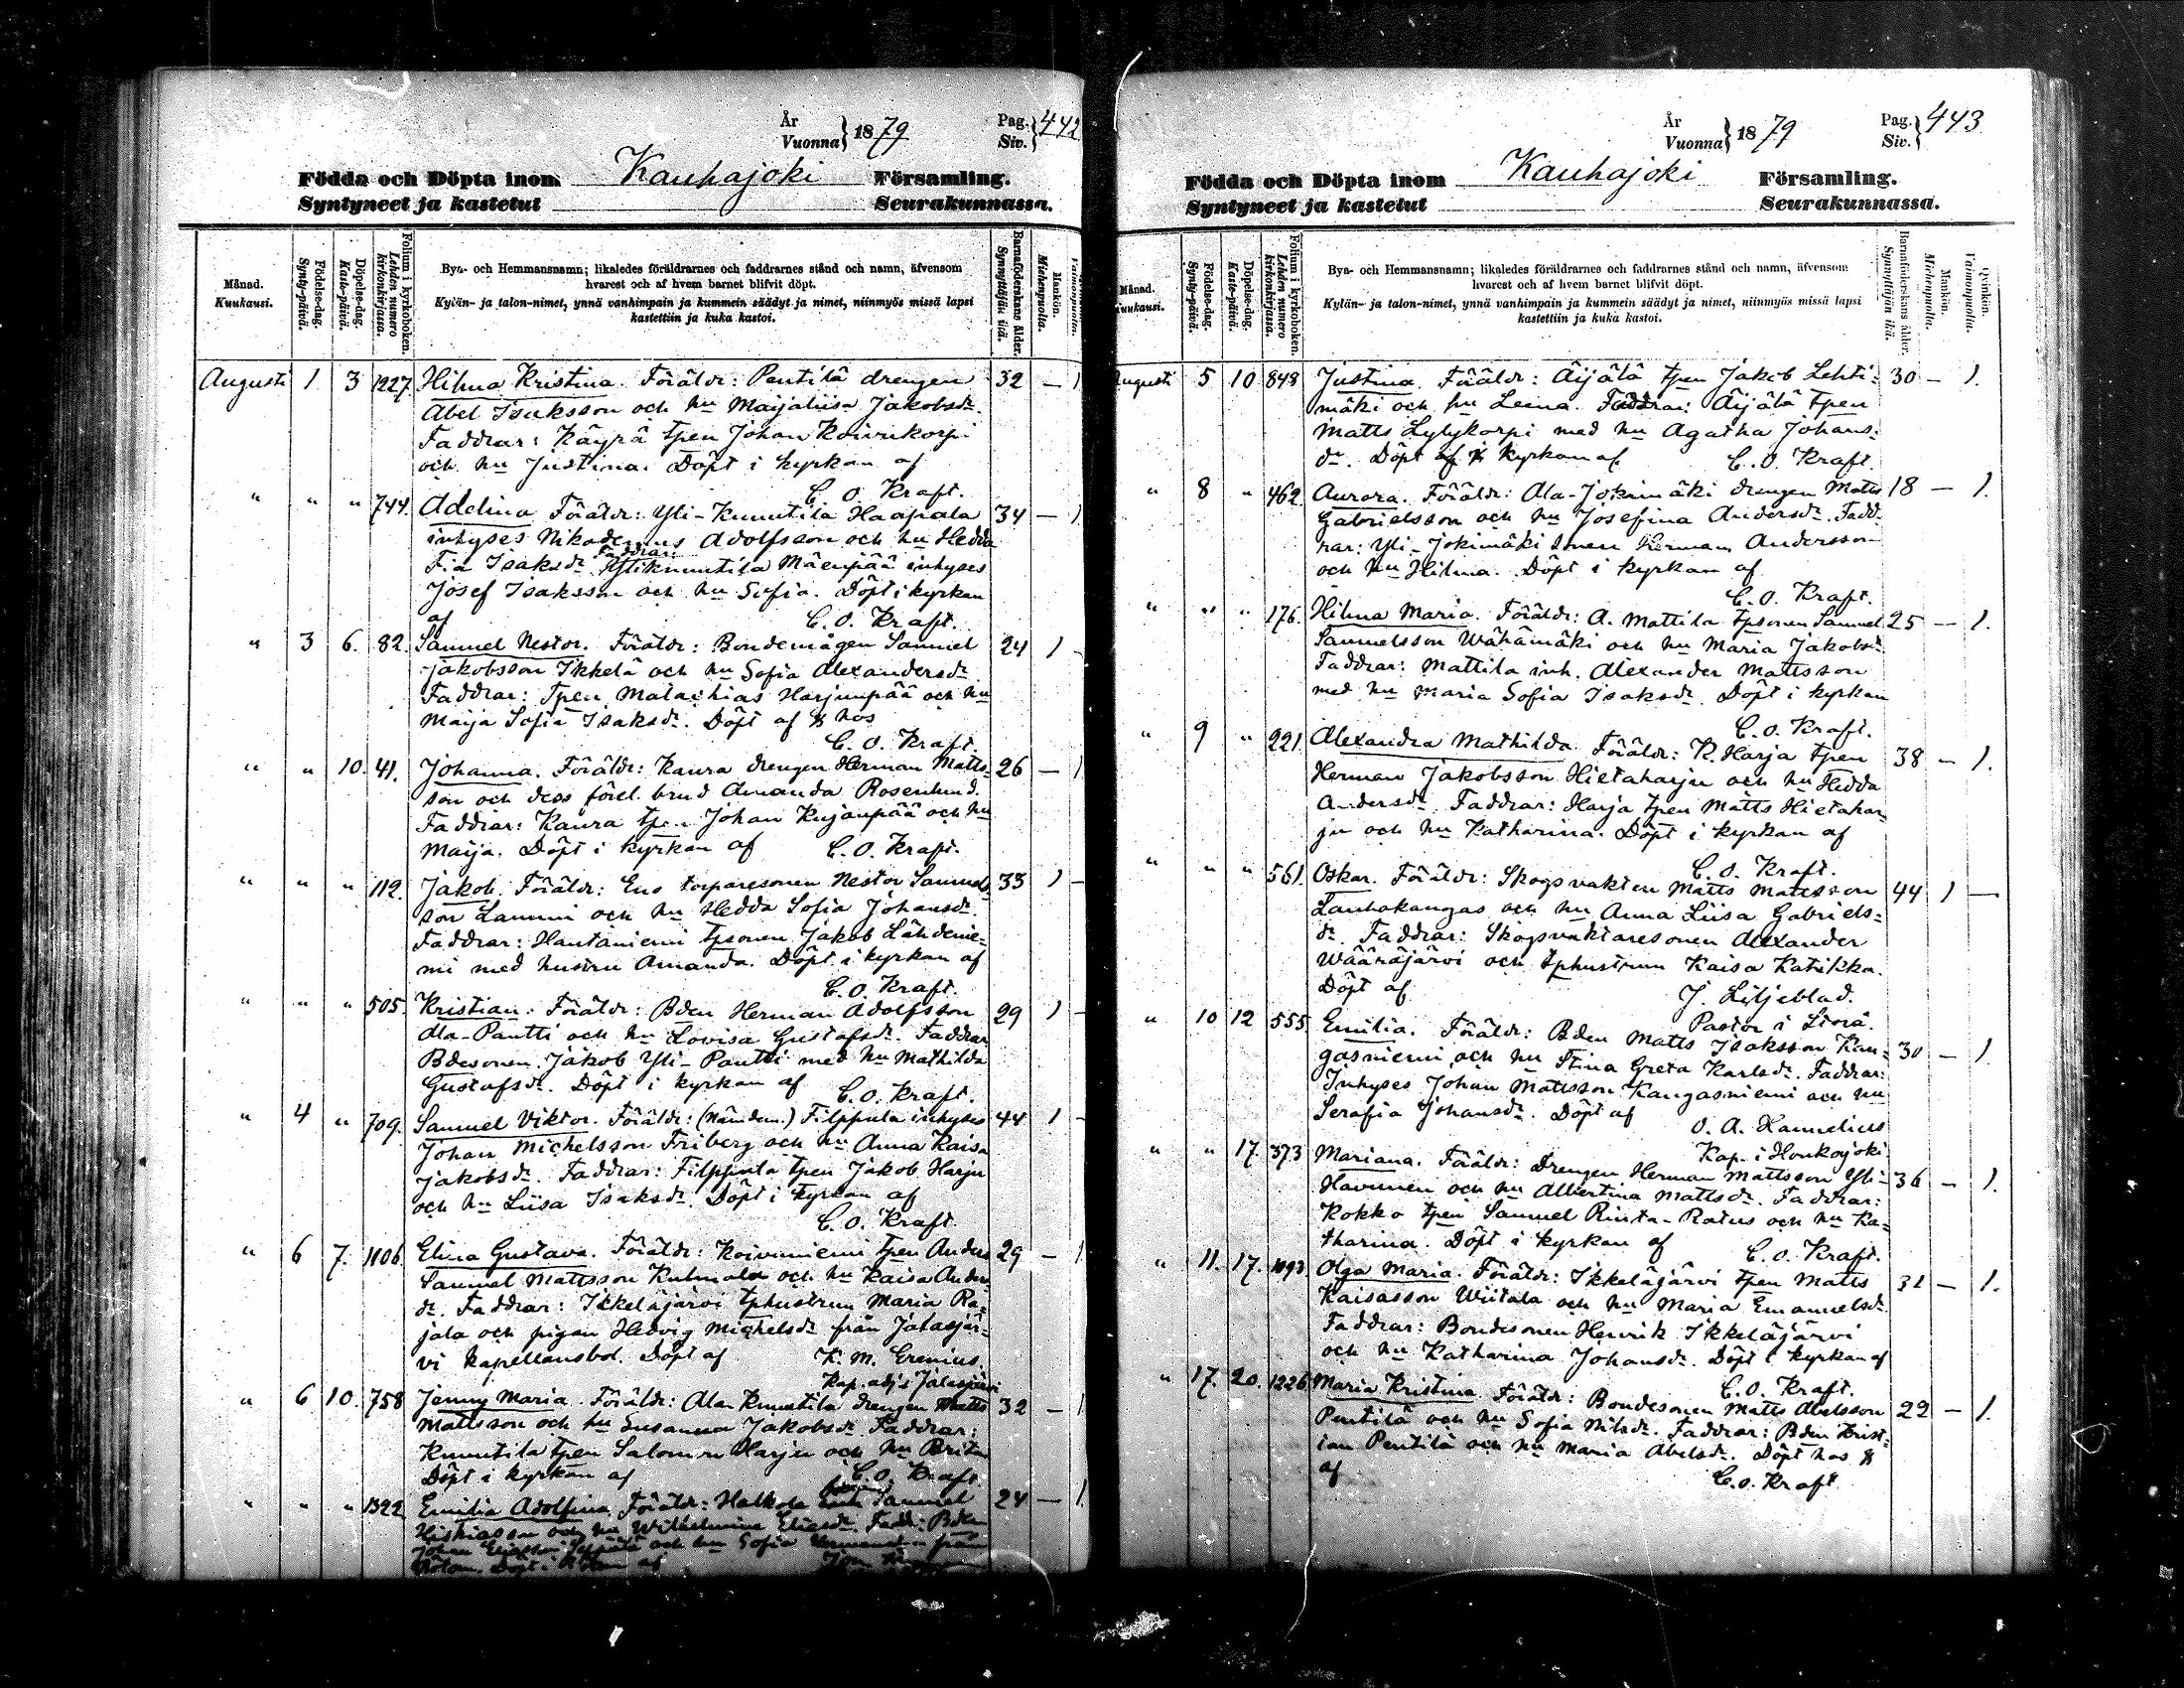 År
Vuonna} 1879
Pag.
Siv.} 442
Födda och Döpta inom Kauhajoki Församling.
Syntyneet ja kastetut Seurakunnassa.
Månad.
Kuukausi.
Födelse-dag.
Synty-päivä.
Döpelse-dag.
Kaste-päivä.
Folium i kyrkoboken.
Lehden numero
kirkonkirjassa.
Bya- och Hemmansnamn; likaledes föräldrarnes och faddrarnes stånd och namn, äfvensom
hvarest och af hvem barnet blifvit döpt.
Kylän- ja talon-nimet, ynnä vanhimpain ja kummein säädyt ja nimet, niinmyös missä lapsi
kastettiin ja kuka kastoi.
Barnaföderskans ålder.
Synnyttäjän ikä.
Mankön.
Miehenpuolta.
Augusti 1. 3 1227. Hilma Kristina. Föräldr: Pentilä drengen 32 — 1
Abel Isaksson och hu Maijaliisa Jakobsdr.
Faddrar: Käyrä tpen Johan Koivukorpi
och hu Justina. Döpt i kyrkan af
C. O. Kraft.
" " " 744. Adelina Föräldr: Yli-Knuutila Haapala 34 — 1
inhyses Nikodemus Adolfsson och hu Hedda
Fia Isaksdr. Faddrar: Yliknuutila Mäenpää inhyses
Josef Isaksson och hu Sofia. Döpt i kyrkan
af C. O. Kraft.
" 3 6. 82. Samuel Nestor. Föräldr: Bondemågen Samuel 24 1 -
Jakobsson Ikkelä och hu Sofia Alexandersdr.
Faddrar: Tpen Malachias Harjunpää och hu
Maija Sofia Isaksdr. Döpt af hos
C. O. Kraft.
" " 10. 41. Johanna. Föräldr: Kaura drengen Herman Matts- 26 — 1
son och dess förel. brud Amanda Rosenlund.
Faddrar: Kaura tpen Johan Kujanpää och hu
Maija. Döpt i kyrkan af C. O. Kraft.
" " " 112. Jakob. Föräldr: Eno torparesonen Nestor Samuels 33 1 -
son Lammi och hu Hedda Sofia Johansdr.
Faddrar: Hautaniemi tpsonen Jakob Lähdenie-
mi med hustru Amanda. Döpt i kyrkan af
C. O. Kraft.
" " " 505. Kristian. Föräldr: Bden Herman Adolfsson 29 1 -
Ala-Pantti och hu Lovisa Gustafsdr. Faddrar
Bdesonen Jakob Yli-Pantti med hu Mathilda
Gustafsdr. Döpt i kyrkan af C. O. Kraft.
" 4 " 709. Samuel Viktor. Föräldr: (Nämdem.) Filppula inhyses 44 1 -
Johan Michelsson Friberg och hu Anna Kaisa
Jakobsdr. Faddrar: Filppula tpen Jakob Harju
och hu Liisa Isaksdr. Döpt i kyrkan af
C. O. Kraft.
" 6 7. 1106. Elina Gustava. Föräldr: Koivuniemi tpen Anders 29 — 1
Samuel Mattsson Kulmala och hu Kaisa Anders
dr. Faddrar: Ikkeläjärvi tphustrun Maria Ra-
jala och pigan Hedvig Michelsdr från Jalasjär-
vi kapellansbol. Döpt af K. M. Erenius.
Kap. adj. i Jalasjärvi
" 6 10. 758 Jenny Maria. Föräldr: Ala Knuutila drengen Matts 32 — 1
Mattsson och hu Susanna Jakobsdr. Faddrar:
Knuutila tpen Salomon Harju och hu Brita
Döpt i kyrkan af C. O. Kraft
" " " 1322. Emilia Adolfina. Föräldr: Halkola Samuel 24 — 1.
Hiskiasson och hu Wilhelmina Eliasdr. Fadd: Bden
Johan Eliasson och hu Sofia från
Döpt i af
År
Vuonna} 1879
Pag.
Siv.} 443
Födda och Döpta inom Kauhajoki Församling.
Syntyneet ja kastetut Seurakunnassa.
Månad.
Kuukausi.
Födelse-dag.
Synty-päivä.
Döpelse-dag.
Kaste-päivä.
Folium i kyrkoboken.
Lehden numero
kirkonkirjassa.
Bya- och Hemmansnamn; likaledes föräldrarnes och faddrarnes stånd och namn, äfvensom
hvarest och af hvem barnet blifvit döpt.
Kylän- ja talon-nimet, ynnä vanhimpain ja kummein säädyt ja nimet, niinmyös missä lapsi
kastettiin ja kuka kastoi.
Barnaföderskans ålder.
Synnyttäjän ikä.
Mankön.
Miehenpuolta.
Qvinkön.
Vaimonpuolta.
Augusti 5 10 848 Justina. Föräldr: Äijälä tpen Jakob Lehti- 30 — 1.
mäki och hu Leena. Faddrar: Äijälä tpen
Matts Lylykorpi med hu Agatha Johans-
dr. Döpt kyrkan af C. O. Kraft.
" 8 " 462. Aurora. Föräldr: Ala-Jokimäki drengen Matts 18 — 1.
Gabrielsson och hu Josefina Andersdr. Fadd-
rar: Yli-Jokimäki sonen Herman Andersson
och hu Hilma. Döpt i kyrkan af
C. O. Kraft.
" " " 176. Hilma Maria. Föräldr: A. Mattila tpsonen Samuel 25 — 1.
Samuelsson Wähämäki och hu Maria Jakobsdr.
Faddrar: Mattila inh. Alexander Mattsson
med hu Maria Sofia Isaksdr. Döpt i kyrkan
C. O. Kraft.
" 9 " 221. Alexandra Mathilda. Föräldr: K. Harja tpen 38 — 1.
Herman Jakobsson Hietaharju och hu Hedda
Andersdr. Faddrar: Harja tpen Matts Hietahar
ju och hu Katharina. Döpt i kyrkan af
C. O. Kraft.
" " " 561. Oskar. Föräldr: Skogsvakten Matts Mattsson 44 1 —
Lauhakangas och hu Anna Liisa Gabriels-
dr. Faddrar: Skogsvaktaresonen Alexander
Wääräjärvi och tphustrun Kaisa Katikka.
Döpt af J. Liljeblad.
Pastor i Storå.
" 10 12 555. Emilia. Föräldr: Bden Matts Isaksson Kan- 30 — 1.
gasniemi och hu Stina Greta Karlsdr. Faddrar:
Inhyses Johan Mattsson Kangasniemi och hu
Serafia Johansdr. Döpt af O. A. Hannelius
Kap. i Honkajoki
" " 17. 373 Mariana. Föräldr: Drengen Herman Mattsson Yli- 36 — 1.
Havunen och hu Albertina Mattsdr. Faddrar:
Kokko tpen Samuel Rinta-Ratus och hu Ka-
tharina. Döpt i kyrkan af C. O. Kraft.
" 11. 17. 1093. Olga Maria. Föräldr: Ikkeläjärvi tpen Matts 31 — 1.
Kaisasson Wiitala och hu Maria Emanuelsdr.
Faddrar: Bondesonen Henrik Ikkeläjärvi
och hu Katharina Johansdr. Döpt i kyrkan af
C. O. Kraft.
" 17. 20. 1226. Maria Kristina. Föräldr: Bondesonen Matts Abelsson 22 — 1.
Pentilä och hu Sofia Nilsdr. Faddrar: Bden Krist-
ian Pentilä och hu Maria Abelsdr. Döpt hos
af C. O. Kraft